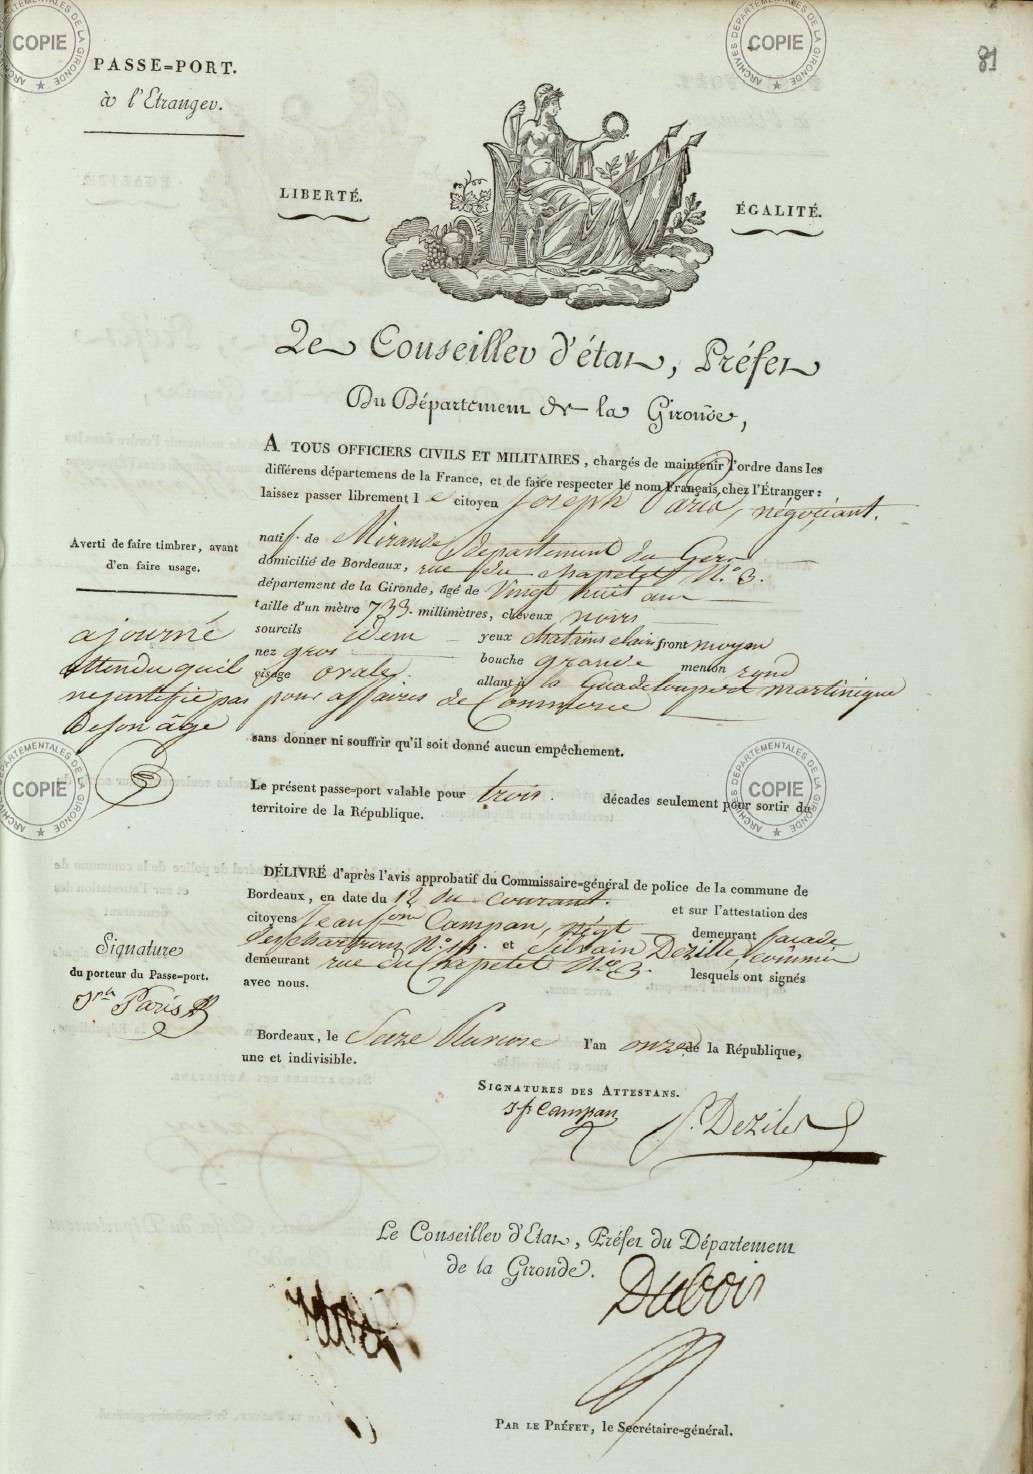 PASSE=PORT.
à l'Etranger.
81
LIBERTÉ.
ÉGALITÉ.
Le Conseiller d'état, Préfet
Du Département de la Gironde,
A TOUS OFFICIERS CIVILS ET MILITAIRES, chargés de maintenir l'ordre dans les
différens départemens de la France, et de faire respecter le nom Français chez l'Étranger:
laissez passer librement l e citoyen Joseph Paris, négociant.
natif de Mirande département du Gers
domicilié de Bordeaux, rue du chapelet N.° 3.
département de la Gironde, âgé de Vingt huit ans
taille d'un mètre 733. millimètres, cheveux noirs
sourcils idem yeux chatains clairs front moyen
nez gros bouche grande menton rond
visage ovale. allant à la Guadeloupe et martinique
pour affaires de Commerce
Averti de faire timbrer, avant
d'en faire usage.
ajourné
attendu quil
nejustifie pas
de son âge
sans donner ni souffrir qu'il soit donné aucun empêchement.
Le présent passe=port valable pour trois. décades seulement pour sortir du
territoire de la République.
DÉLIVRÉ d'après l'avis approbatif du Commissaire-général de police de la commune de
Bordeaux, en date du 12 du courant. et sur l'attestation des
citoyens Jean Campan, négt demeurant facade
des chartrons N.° 14. et Silvain Dezille, commis
demeurant rue du Chapelet N.° 3. lesquels ont signés
avec nous.
Signature
du porteur du Passe=port.
Jph Paris
Bordeaux, le Seize Pluviose l'an onze de la République,
une et indivisible.
SIGNATURES DES ATTESTANS.
J. f. Campan
S. Dezile
Le Conseiller d'Etat, Préfet du Département
de la Gironde.
Dubois
PAR LE PRÉFET, le Secrétaire=général.
ARCHIVES DÉPARTEMENTALES DE LA GIRONDE
COPIE
ARCHIVES DÉPARTEMENTALES DE LA GIRONDE
COPIE
ARCHIVES DÉPARTEMENTALES DE LA GIRONDE
COPIE
ARCHIVES DÉPARTEMENTALES DE LA GIRONDE
COPIE